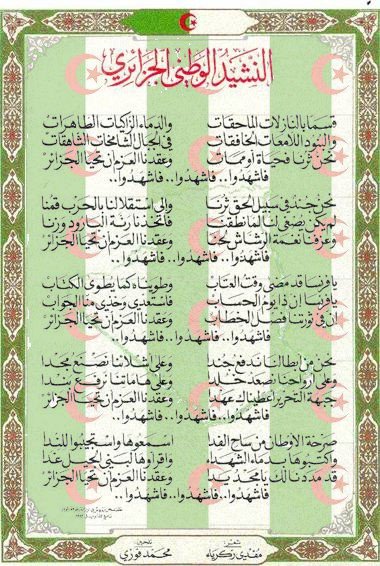 النشيد الوطني الجزائري
قسما بالنازلات الماحقات والدماء الزاكيات الطاهرات
والبنود اللامعات الخافقات في الجبال الشامخات الشاهقات
نحن ثرنا فحياة أو ممات وعقدنا العزم أن تحيا الجزائر
فاشهدوا.. فاشهدوا.. فاشهدوا..
نحن جند في سبيل الحق ثرنا وإلى استقلالنا بالحرب قمنا
لم يكن يصغى لنا لما نطقنا فاتخذنا رنة البارود وزنا
وعزفنا نغمة الرشاش لحنا وعقدنا العزم أن تحيا الجزائر
فاشهدوا.. فاشهدوا.. فاشهدوا..
يا فرنسا قد مضى وقت العتاب وطويناه كما يطوى الكتاب
يا فرنسا إن ذا يوم الحساب فاستعدي وخذي منا الجواب
إن في ثورتنا فصل الخطاب وعقدنا العزم أن تحيا الجزائر
فاشهدوا.. فاشهدوا.. فاشهدوا..
نحن من أبطالنا ندفع جندا وعلى أشلائنا نصنع مجدا
وعلى أرواحنا نصعد خلدا وعلى هاماتنا نرفع بندا
جبهة التحرير أعطيناك عهدا وعقدنا العزم أن تحيا الجزائر
فاشهدوا.. فاشهدوا.. فاشهدوا..
صرخة الأوطان من ساح الفدا اسمعوها واستجيبوا للندا
واكتبوها بدماء الشهداء واقرأوها لبني الجيل غدا
قد مددنا لك يا مجد يدا وعقدنا العزم أن تحيا الجزائر
فاشهدوا.. فاشهدوا.. فاشهدوا..
شعر: تلحين:
مفدي زكرياء محمد فوزي